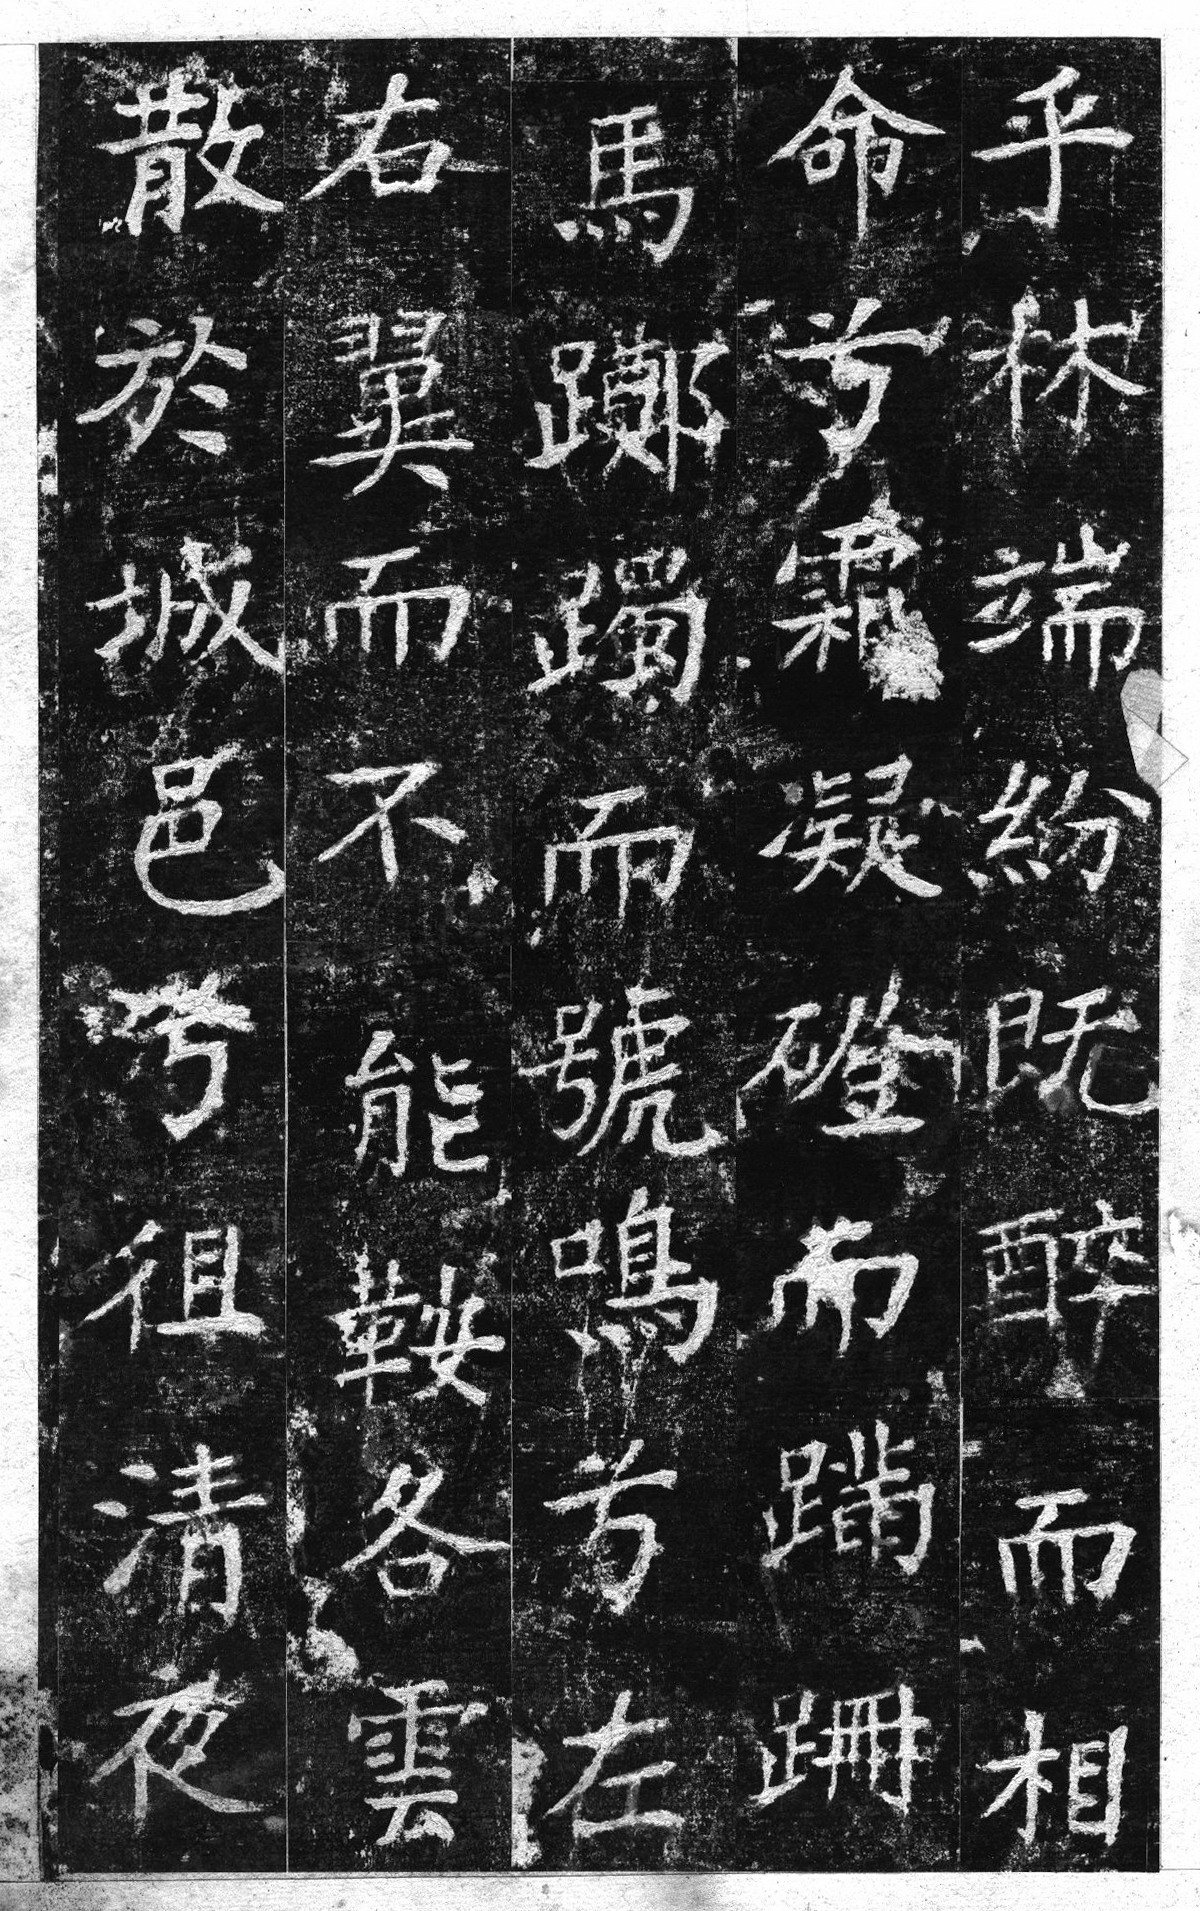 乎林端紛既醉而相
命兮霜凝磴而蹣跚
馬躑躅而號鳴兮左
右翼而不能鞍各雲
散於城邑兮徂清夜